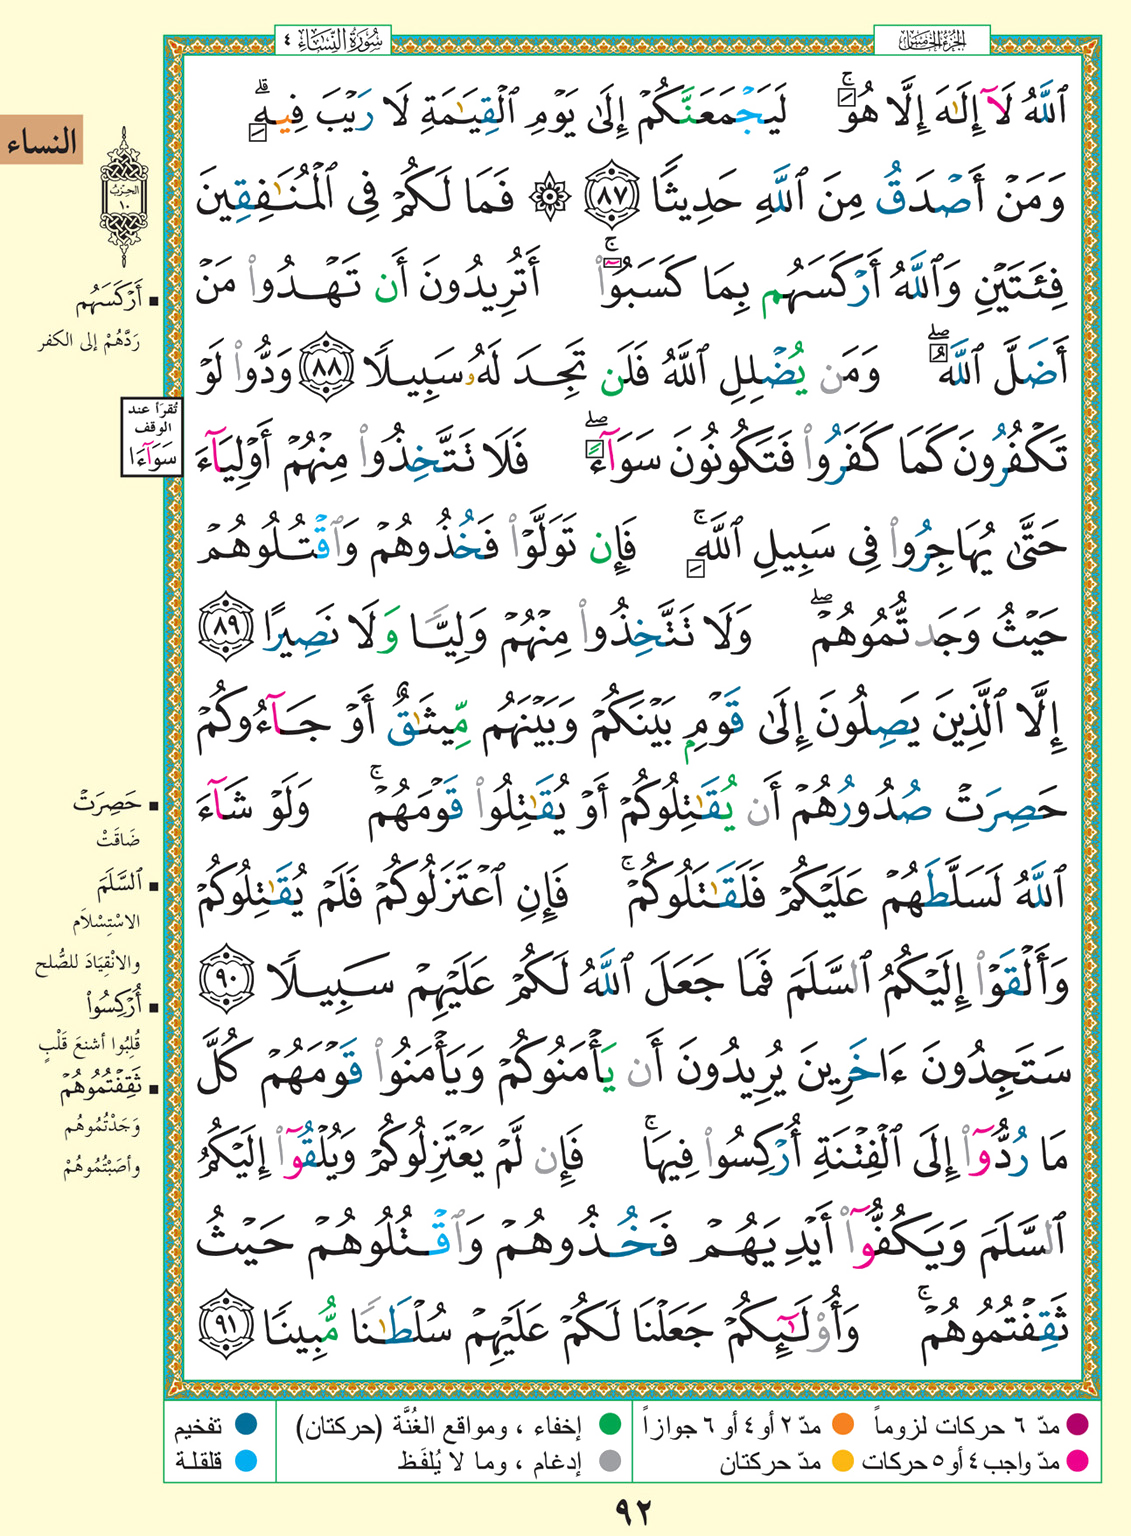 الجزء الخامس
سورة النساء ٤
ٱللَّهُ لَآ إِلَٰهَ إِلَّا هُوَ ۚ لَيَجْمَعَنَّكُمْ إِلَىٰ يَوْمِ ٱلْقِيَٰمَةِ لَا رَيْبَ فِيهِ ۗ
وَمَنْ أَصْدَقُ مِنَ ٱللَّهِ حَدِيثًا ٨٧ ۞ فَمَا لَكُمْ فِى ٱلْمُنَٰفِقِينَ
فِئَتَيْنِ وَٱللَّهُ أَرْكَسَهُم بِمَا كَسَبُوٓا۟ ۚ أَتُرِيدُونَ أَن تَهْدُوا۟ مَنْ
أَضَلَّ ٱللَّهُ ۖ وَمَن يُضْلِلِ ٱللَّهُ فَلَن تَجِدَ لَهُۥ سَبِيلًا ٨٨ وَدُّوا۟ لَوْ
تَكْفُرُونَ كَمَا كَفَرُوا۟ فَتَكُونُونَ سَوَآءً ۖ فَلَا تَتَّخِذُوا۟ مِنْهُمْ أَوْلِيَآءَ
حَتَّىٰ يُهَاجِرُوا۟ فِى سَبِيلِ ٱللَّهِ ۚ فَإِن تَوَلَّوْا۟ فَخُذُوهُمْ وَٱقْتُلُوهُمْ
حَيْثُ وَجَدتُّمُوهُمْ ۖ وَلَا تَتَّخِذُوا۟ مِنْهُمْ وَلِيًّا وَلَا نَصِيرًا ٨٩
إِلَّا ٱلَّذِينَ يَصِلُونَ إِلَىٰ قَوْمٍۭ بَيْنَكُمْ وَبَيْنَهُم مِّيثَٰقٌ أَوْ جَآءُوكُمْ
حَصِرَتْ صُدُورُهُمْ أَن يُقَٰتِلُوكُمْ أَوْ يُقَٰتِلُوا۟ قَوْمَهُمْ ۚ وَلَوْ شَآءَ
ٱللَّهُ لَسَلَّطَهُمْ عَلَيْكُمْ فَلَقَٰتَلُوكُمْ ۚ فَإِنِ ٱعْتَزَلُوكُمْ فَلَمْ يُقَٰتِلُوكُمْ
وَأَلْقَوْا۟ إِلَيْكُمُ ٱلسَّلَمَ فَمَا جَعَلَ ٱللَّهُ لَكُمْ عَلَيْهِمْ سَبِيلًا ٩٠
سَتَجِدُونَ ءَاخَرِينَ يُرِيدُونَ أَن يَأْمَنُوكُمْ وَيَأْمَنُوا۟ قَوْمَهُمْ كُلَّ
مَا رُدُّوٓا۟ إِلَى ٱلْفِتْنَةِ أُرْكِسُوا۟ فِيهَا ۚ فَإِن لَّمْ يَعْتَزِلُوكُمْ وَيُلْقُوٓا۟ إِلَيْكُمُ
ٱلسَّلَمَ وَيَكُفُّوٓا۟ أَيْدِيَهُمْ فَخُذُوهُمْ وَٱقْتُلُوهُمْ حَيْثُ
ثَقِفْتُمُوهُمْ ۚ وَأُو۟لَٰٓئِكُمْ جَعَلْنَا لَكُمْ عَلَيْهِمْ سُلْطَٰنًا مُّبِينًا ٩١
النساء
الحزب
١٠
▪ أَرْكَسَهُم
رَدَّهُمْ إلى الكفر
تُقرَأ عند
الوقف
سَوَآءَا
▪ حَصِرَتْ
ضَاقَتْ
▪ ٱلسَّلَمَ
الاسْتِسْلَام
والانْقِيَادَ للصُّلح
▪ أُرْكِسُوا۟
قُلِبُوا أشنعَ قَلْبٍ
▪ ثَقِفْتُمُوهُمْ
وَجَدْتُمُوهُم
وأصَبْتُمُوهُمْ
مدّ ٦ حركات لزوماً
مدّ ٢ أو ٤ أو ٦ جوازاً
إخفاء ، ومواقع الغُنَّة (حركتان)
تفخيم
مدّ واجب ٤ أو ٥ حركات
مدّ حركتان
إدغام ، وما لا يُلفَظ
قلقلة
٩٢